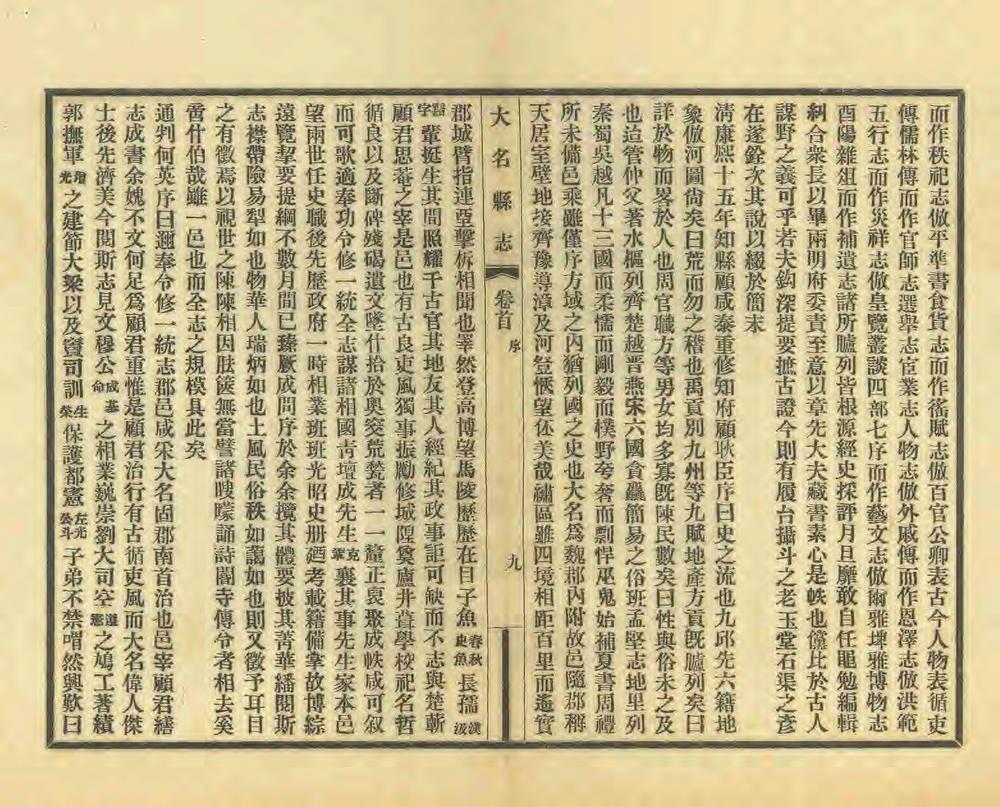 而作秩祀志倣平準書食貨志而作徭賦志倣百官公卿表古今人物表循吏
傳儒林傳而作官師志選舉志宦業志人物志倣外戚傳而作恩澤志倣洪範
五行志而作災祥志倣皇覽叢談四部七序而作藝文志倣爾雅埤雅博物志
酉陽雜俎而作補遺志諸所臚列皆根源經史採評月旦靡敢自任黽勉編輯
糾合衆長以畢兩明府委責至意以章先大夫藏書素心是帙也儻比於古人
謀野之義可乎若夫鈎深提要摭古證今則有履台攝斗之老玉堂石渠之彥
在遂銓次其說以綴於簡末
淸康熙十五年知縣顧咸泰重修知府顧耿臣序曰史之流也九邱先六籍地
象倣河圖尙矣曰荒而勿之稽也禹貢別九州等九賦地產方貢旣臚列矣曰
詳於物而畧於人也周官職方等男女均多寡旣陳民數矣曰性與俗未之及
也迨管仲父著水樞列齊楚越晉燕宋六國貪麤簡易之俗班孟堅志地里列
秦蜀吳越凡十三國而柔懦而剛毅而樸野夸奢而剽悍巫鬼始補夏書周禮
所未備邑乘雖僅序方域之內猶列國之史也大名爲魏郡內附故邑隨郡稱
天居室壁地接齊豫導漳及河登愜望伾美哉繡區雖四境相距百里而遙實
大名縣志 卷首 序 九
郡城臂指連亞擊柝相聞也睪然登高博望馬陵歷歷在目子魚春秋史魚長孺漢汲
黯字輩挺生其間照耀千古官其地友其人經紀其政事詎可缺而不志與楚蘄
顧君思菴之宰是邑也有古良吏風獨事振勵修城隍奠廬井葺學校祀名哲
循良以及斷碑殘碣遺文墜什拾於輿突荒甃者一一釐正裒聚成帙咸可叙
而可歌適奉功令修一統全志謀諸相國靑壇成先生克鞏襄其事先生家本邑
望兩世任史職後先歷政府一時相業班班光昭史册廻考載籍備掌故博綜
遠覽挈要提綱不數月間已臻厥成問序於余余攬其體要披其菁華繙閱斯
志襟帶險易犁如也物華人瑞炳如也土風民俗秩如藹如也則又徵予耳目
之有徵焉以視世之陳陳相因胠篋無當譬諸瞍矇誦詩閽寺傳令者相去奚
啻什伯哉雖一邑也而全志之規模具此矣
通判何英序曰邇奉令修一統志郡邑咸采大名固郡南首治也邑宰顧君繕
志成書余媿不文何足爲顧君重惟是顧君治行有古循吏風而大名偉人傑
士後先濟美今閱斯志見文穆公成基命之相業巍崇劉大司空遵憲之鳩工著績
郭撫軍增光之建節大樂以及竇司訓生榮保護都憲左光斗公子弟不禁喟然興歎曰